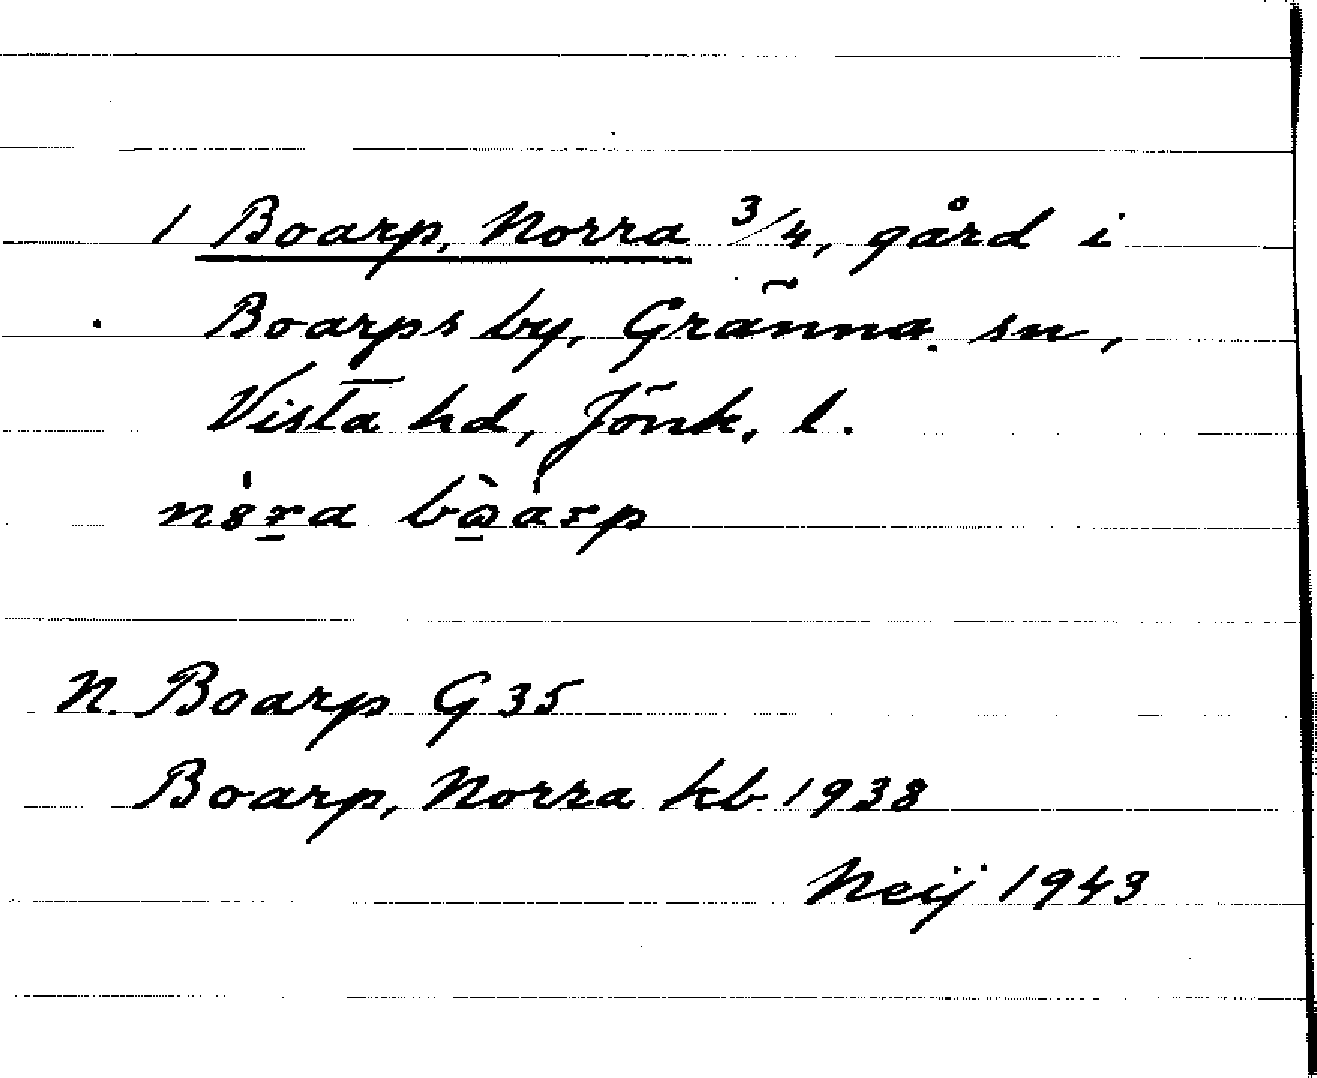 1 Boarp, Norra 3/4, gård i
Boarps by, Gränna sn,
Vista hd, Jönk. l.
N. Boarp G 35
Boarp, Norra kb 1938
Neij 1943